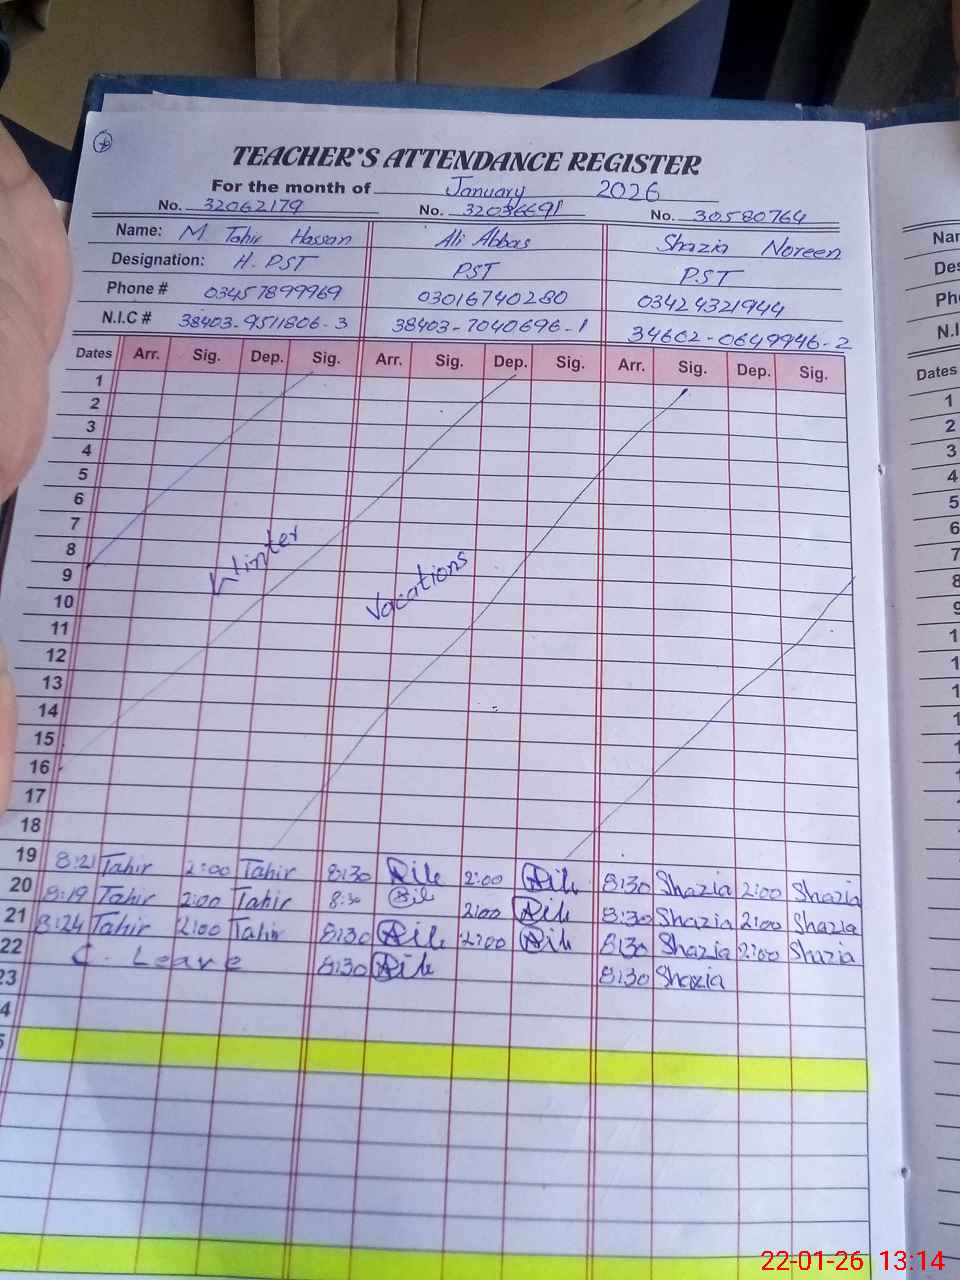 TEACHER'S ATTENDANCE REGISTER
For the month of January 2026
No. 32062179 No. 32036691 No. 30580764
Name: M Tahir Hassan Ali Abbas Shazia Noreen
Designation: H. PST PST PST
Phone # 03457899969 03016740280 03424321944
N.I.C # 38403-9511806-3 38403-7040696-1 34602-0649946-2
Dates Arr. Sig. Dep. Sig. Arr. Sig. Dep. Sig. Arr. Sig. Dep. Sig.
1
2
3
4
5
6
7
8
9
10
11
12
13
14
15
16
17
18
Winter Vacations
19 8:21 Tahir 2:00 Tahir 8:30 2:00 8:30 Shazia 2:00 Shazia
20 8:19 Tahir 2:00 Tahir 8:30 2:00 8:30 Shazia 2:00 Shazia
21 8:24 Tahir 2:00 Tahir 8:30 2:00 8:30 Shazia 2:00 Shazia
22 C. Leave 8:30 8:30 Shazia
23
4
Dates
1
2
3
4
5
6
7
8
22-01-26 13:14